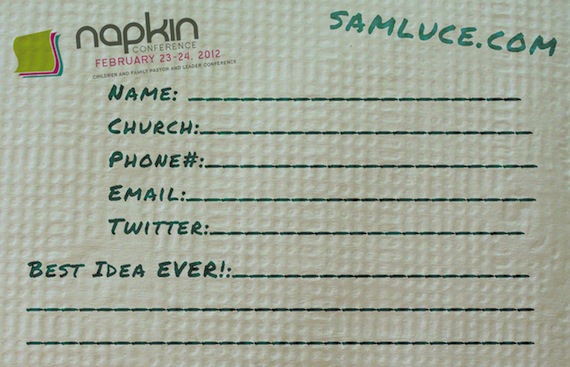 napkin
CONFERENCE
FEBRUARY 23-24, 2012
CHILDREN AND FAMILY PASTOR AND LEADER CONFERENCE
SAMLUCE.COM
NAME:
CHURCH:
PHONE#:
EMAIL:
TWITTER:
BEST IDEA EVER!: